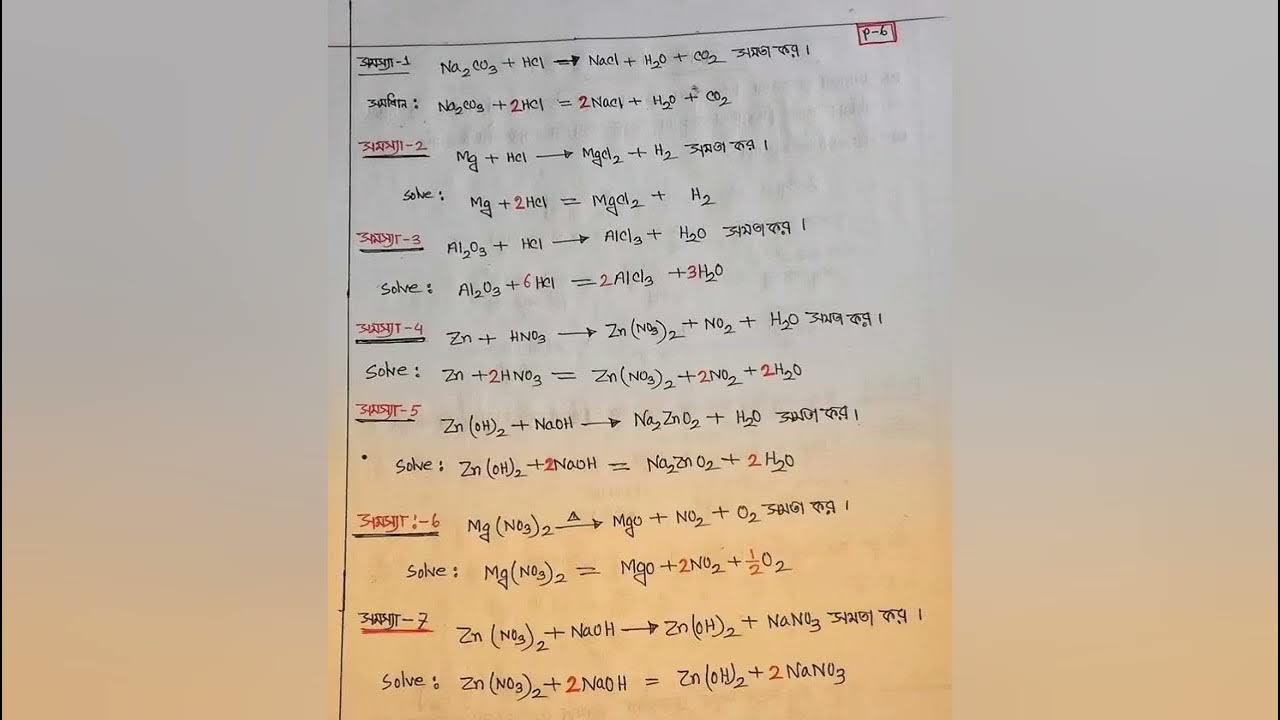 P-6
সমস্যা-1 Na₂CO₃ + HCl → NaCl + H₂O + CO₂ সমতা কর।
সমাধান: Na₂CO₃ + 2HCl = 2NaCl + H₂O + CO₂
সমস্যা-2 Mg + HCl → MgCl₂ + H₂ সমতা কর।
Solve: Mg + 2HCl = MgCl₂ + H₂
সমস্যা-3 Al₂O₃ + HCl → AlCl₃ + H₂O সমতা কর।
Solve: Al₂O₃ + 6HCl = 2AlCl₃ + 3H₂O
সমস্যা-4 Zn + HNO₃ → Zn(NO₃)₂ + NO₂ + H₂O সমতা কর।
Solve: Zn + 2HNO₃ = Zn(NO₃)₂ + 2NO₂ + 2H₂O
সমস্যা-5 Zn(OH)₂ + NaOH → Na₂ZnO₂ + H₂O সমতা কর।
Solve: Zn(OH)₂ + 2NaOH = Na₂ZnO₂ + 2H₂O
সমস্যা:-6 Mg(NO₃)₂ —Δ→ MgO + NO₂ + O₂ সমতা কর।
Solve: Mg(NO₃)₂ = MgO + 2NO₂ + ½O₂
সমস্যা-7 Zn(NO₃)₂ + NaOH → Zn(OH)₂ + NaNO₃ সমতা কর।
Solve: Zn(NO₃)₂ + 2NaOH = Zn(OH)₂ + 2NaNO₃